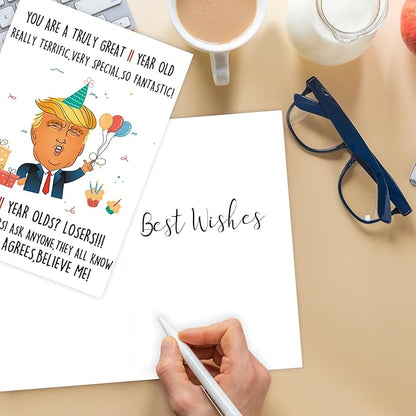 YOU ARE A TRULY GREAT 11 YEAR OLD
REALLY TERRIFIC, VERY SPECIAL, SO FANTASTIC!
YEAR OLDS? LOSERS!!!
ASK ANYONE, THEY ALL KNOW
AGREES, BELIEVE ME!
Best Wishes